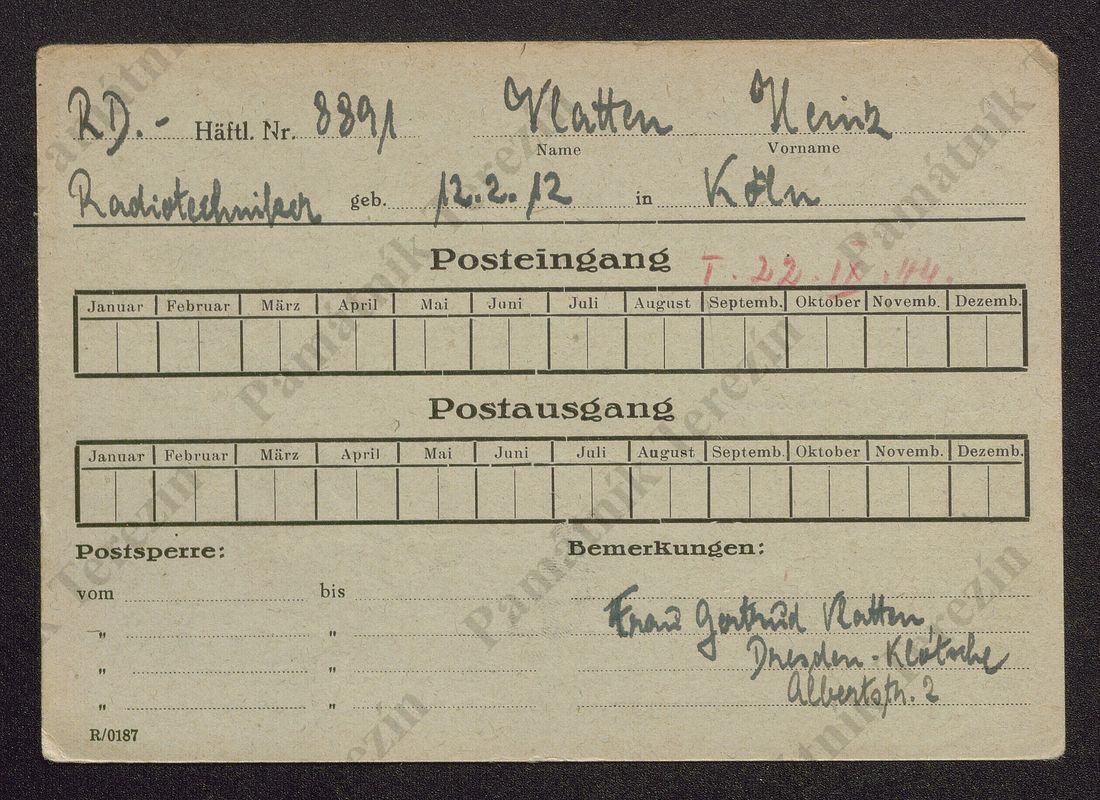 RD.- Häftl. Nr. 8891 Vlatten Heinz
Name Vorname
Radiotechniker geb. 12.2.12 in Köln
Posteingang T. 22.IX.44.
Januar Februar März April Mai Juni Juli August Septemb. Oktober Novemb. Dezemb.
Postausgang
Januar Februar März April Mai Juni Juli August Septemb. Oktober Novemb. Dezemb.
Postsperre: Bemerkungen:
vom bis
Frau Gertrud Vlatten,
" "
Dresden - Klotsche
" "
Albertstr. 2
" "
R/0187
Památník Terezín